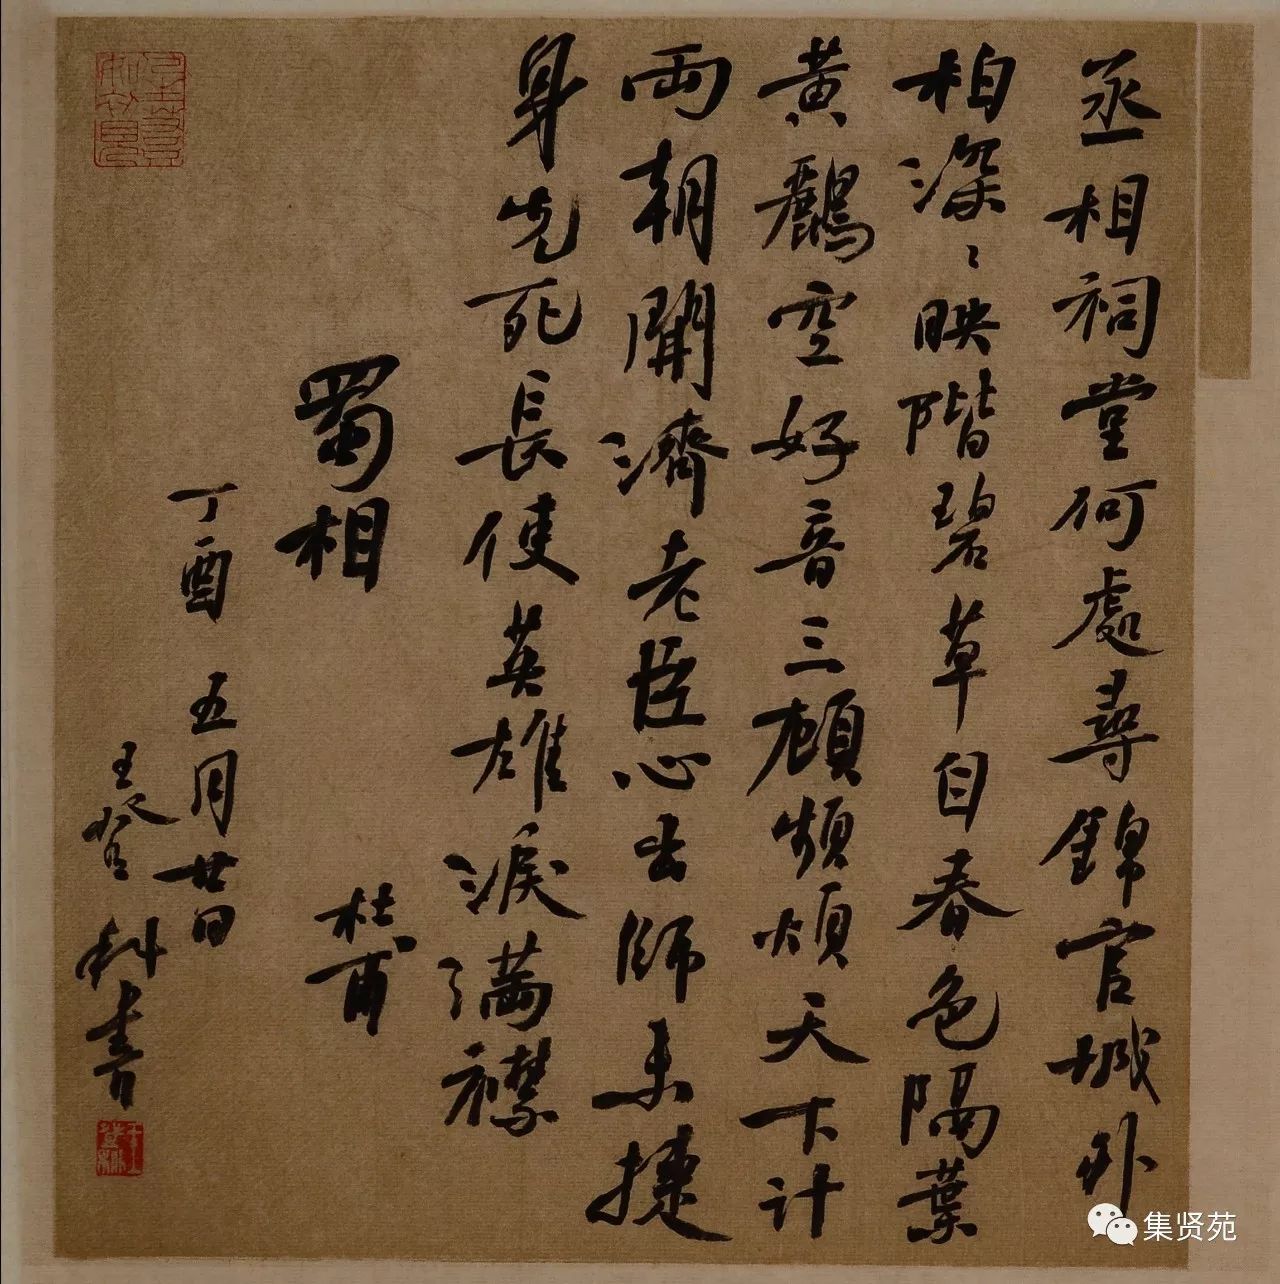 丞相祠堂何處尋錦官城外
柏深〻映階碧草自春色隔葉
黃鸝空好音三顧頻煩天下計
兩朝開濟老臣心出師未捷
身先死長使英雄淚滿襟
蜀相 杜甫
丁酉 五月廿日
王登科書
集贤苑